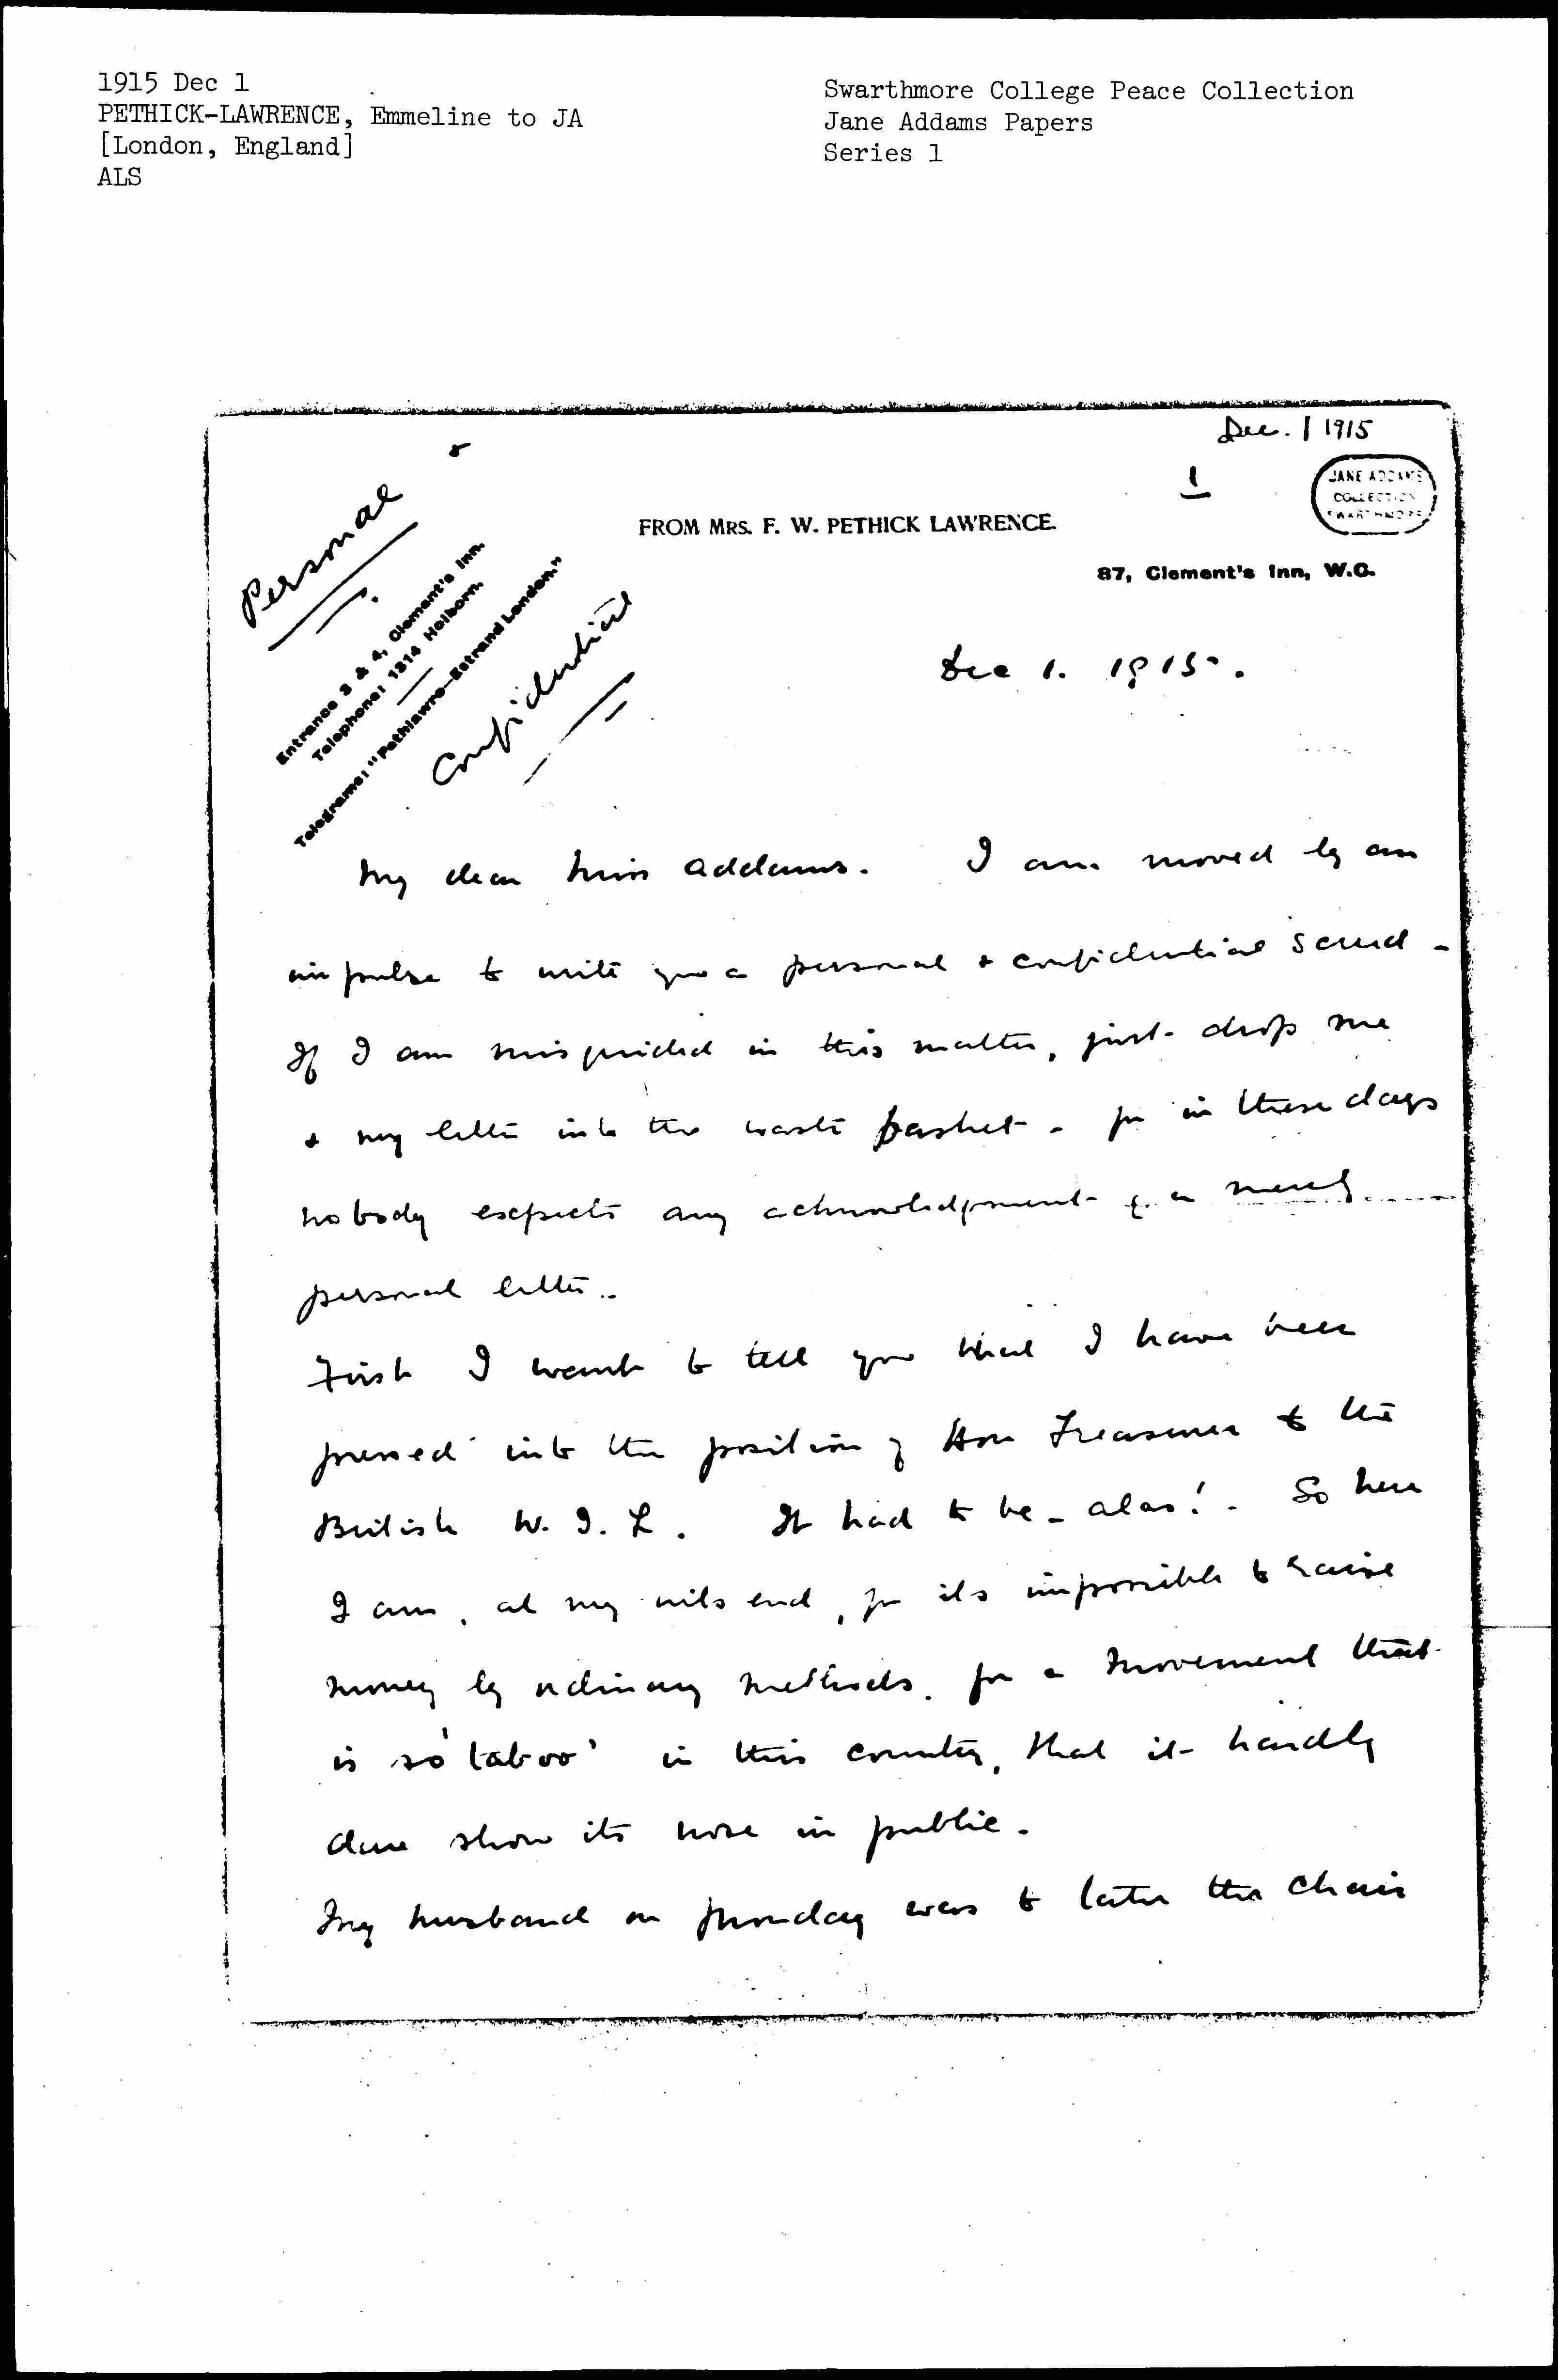 1915 Dec 1
PETHICK-LAWRENCE, Emmeline to JA
[London, England]
ALS
Swarthmore College Peace Collection
Jane Addams Papers
Series 1
Dec. 1 1915
1
JANE ADDAMS
COLLECTION
SWARTHMORE
FROM MRS. F. W. PETHICK LAWRENCE.
87, Clement's Inn, W.C.
Personal &
Entrance 3 & 4, Clement's Inn.
Telephone: 1314 Holborn.
Telegrams: "Pethlawro—Estrand London."
Confidential
Dec 1. 1915.
My dear Miss Addams. I am moved by an
impulse to write you a personal & confidential screed -
If I am misguided in this matter, just drop me
& my letter into the waste basket - for in these days
nobody expects any acknowledgment of a merely
personal letter..
First I want to tell you that I have been
pressed into the position of Hon Treasurer to the
British W. I. L. It had to be - alas! - So here
I am, at my wits end, for its impossible to raise
money by ordinary methods, for a movement that
is so 'taboo' in this country, that it hardly
dare show its nose in public.
My husband on Monday was to take the chair